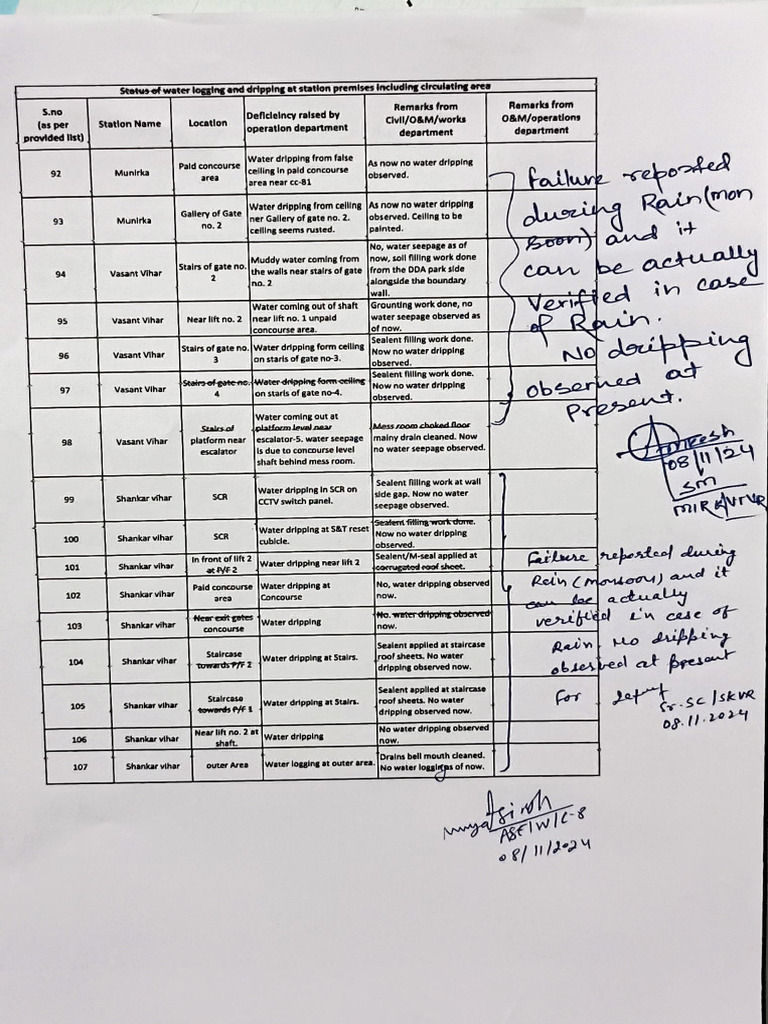 Status of water logging and dripping at station premises including circulating area
S.no (as per provided list) | Station Name | Location | Deficieincy raised by operation department | Remarks from Civil/O&M/works department | Remarks from O&M/operations department
92 | Munirka | Paid concourse area | Water dripping from false ceiling in paid concourse area near cc-81 | As now no water dripping observed.
93 | Munirka | Gallery of Gate no. 2 | Water dripping from ceiling ner Gallery of gate no. 2. ceiling seems rusted. | As now no water dripping observed. Ceiling to be painted.
94 | Vasant Vihar | Stairs of gate no. 2 | Muddy water coming from the walls near stairs of gate no. 2 | No, water seepage as of now, soil filling work done from the DDA park side alongside the boundary wall.
95 | Vasant Vihar | Near lift no. 2 | Water coming out of shaft near lift no. 1 unpaid concourse area. | Grounting work done, no water seepage observed as of now.
96 | Vasant Vihar | Stairs of gate no. 3 | Water dripping form ceiling on staris of gate no-3. | Sealent filling work done. Now no water dripping observed.
97 | Vasant Vihar | Stairs of gate no. 4 | Water dripping form ceiling on staris of gate no-4. | Sealent filling work done. Now no water dripping observed.
98 | Vasant Vihar | Stairs of platform near escalator | Water coming out at platform level near escalator-5. water seepage is due to concourse level shaft behind mess room. | Mess room choked floor mainy drain cleaned. Now no water seepage observed.
99 | Shankar vihar | SCR | Water dripping in SCR on CCTV switch panel. | Sealent filling work at wall side gap. Now no water seepage observed.
100 | Shankar vihar | SCR | Water dripping at S&T reset cubicle. | Sealent filling work done. Now no water dripping observed.
101 | Shankar vihar | In front of lift 2 at P/F 2 | Water dripping near lift 2 | Sealent/M-seal applied at corrugated roof sheet.
102 | Shankar vihar | Paid concourse area | Water dripping at Concourse | No, water dripping observed now.
103 | Shankar vihar | Near exit gates concourse | Water dripping | No. water dripping observed now.
104 | Shankar vihar | Staircase towards P/F 2 | Water dripping at Stairs. | Sealent applied at staircase roof sheets. No water dripping observed now.
105 | Shankar vihar | Staircase towards P/F 1 | Water dripping at Stairs. | Sealent applied at staircase roof sheets. No water dripping observed now.
106 | Shankar vihar | Near lift no. 2 at shaft. | Water dripping | No water dripping observed now.
107 | Shankar vihar | outer Area | Water logging at outer area. | Drains bell mouth cleaned. No water loggings of now.
Failure reposted
during Rain(mon
soon) and it
can be actually
Verified in case
of Rain.
No dripping
observed at
Present.
08/11/24
SM
MIRK/VTVR
Failure reported during
Rain (monsoon) and it
can be actually
verified in case of
Rain. No dripping
observed at present
For
Sr. SC/SKVR
08.11.2024
ASE/W/C-8
08/11/2024